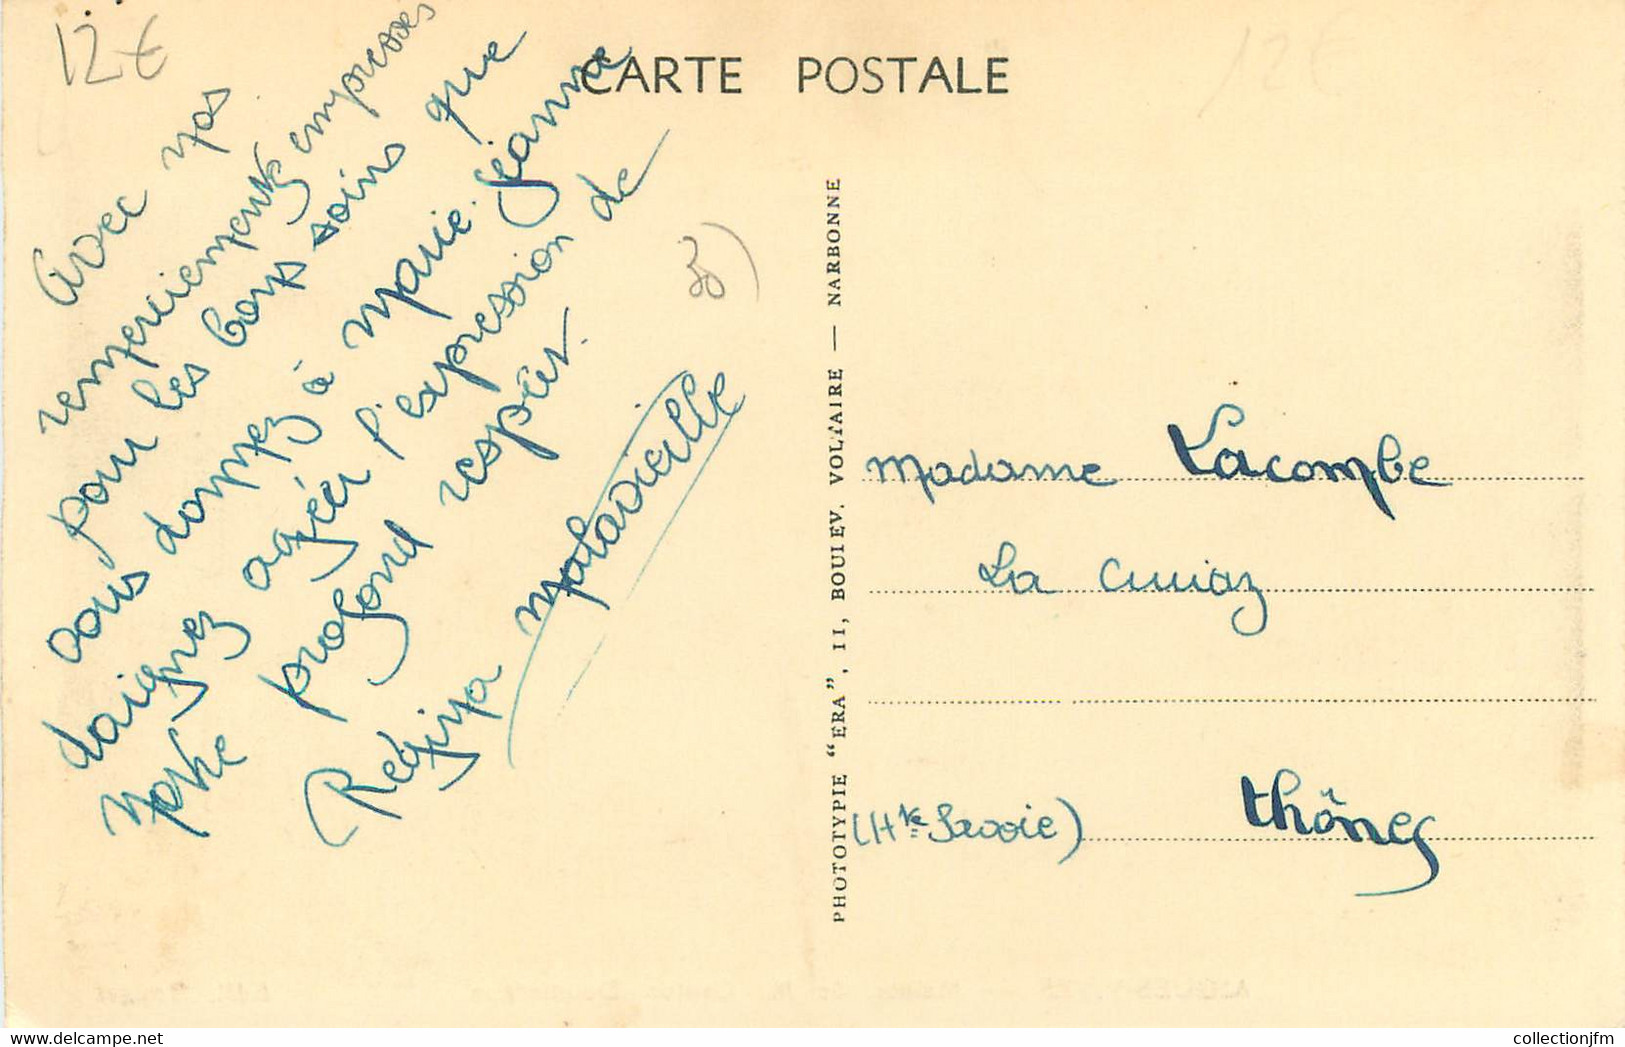 12€
12€
CARTE POSTALE
Avec nos
remerciements empressés
pour les bons soins que
vous donnez à Marie-Jeanne
daignez agréer l'expression de
notre profond respect.
Régina Malavieille
PHOTOTYPIE “ERA”, 11, BOULEV. VOLTAIRE — NARBONNE
Madame Lacombe
La Cuiaz
(Hte Savoie) Thônes
collectionjfm